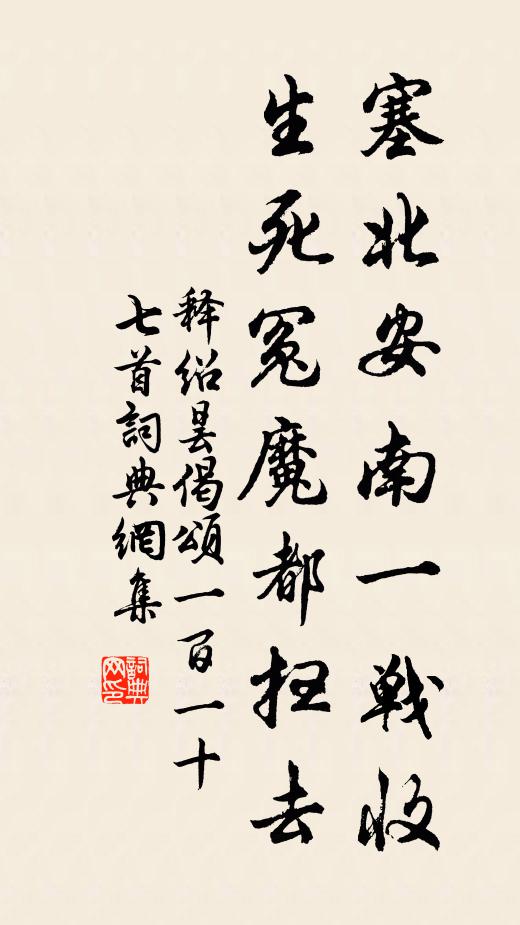 塞北安南一戦收
生死冤魔都抂去
释紹昙偈頌一百一十
七首詞典網集
詞典网印